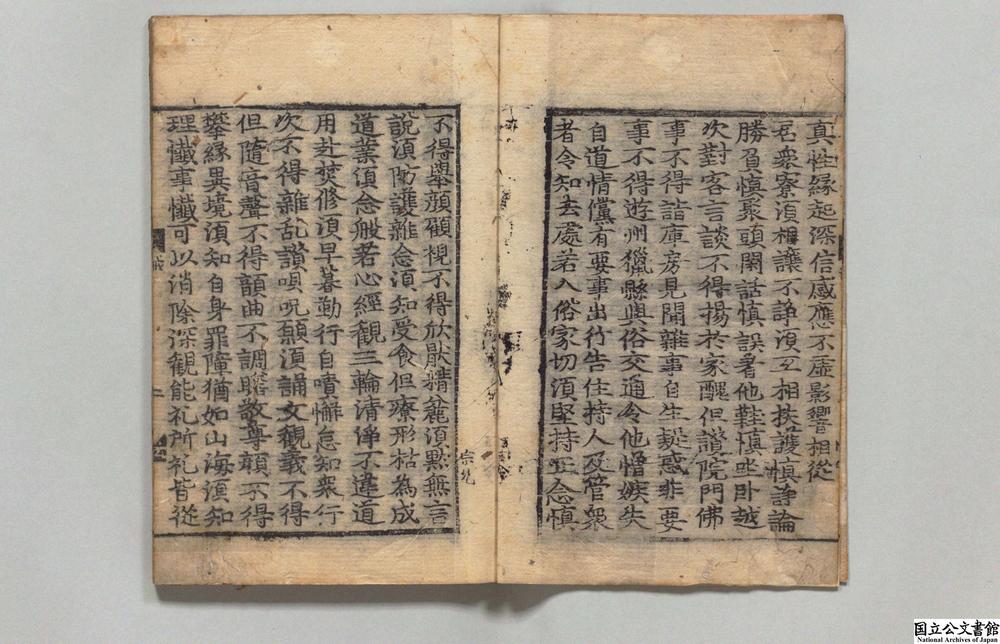 真性緣起深信感應不虛影響相從
居衆寮須相讓不諍須互相扶護慎諍論
勝負慎聚頭閑話慎誤著他鞋慎坐卧越
次對客言談不得揚於家醜但讃院門佛
事不得詣庫房見聞雜事自生疑惑非要
事不得遊州獵縣與俗交通令他憎嫉失
自道情儻有要事出行告住持人及管衆
者令知去處若入俗家切須堅持正念慎
宗允
不得舉顔顧視不得欣猒精麁須黙無言
說須防護雜念須知受食但療形枯為成
道業須念般若心經觀三輪清淨不違道
用赴焚修須早暮勤行自嘖懈怠知衆行
次不得雜乱讃唄呪願須誦文觀義不得
但隨音聲不得韻曲不調瞻敬尊顔不得
攀緣異境須知自身罪障猶如山海須知
理懺事懺可以消除深觀能礼所礼皆從
二
国立公文書館
National Archives of Japan